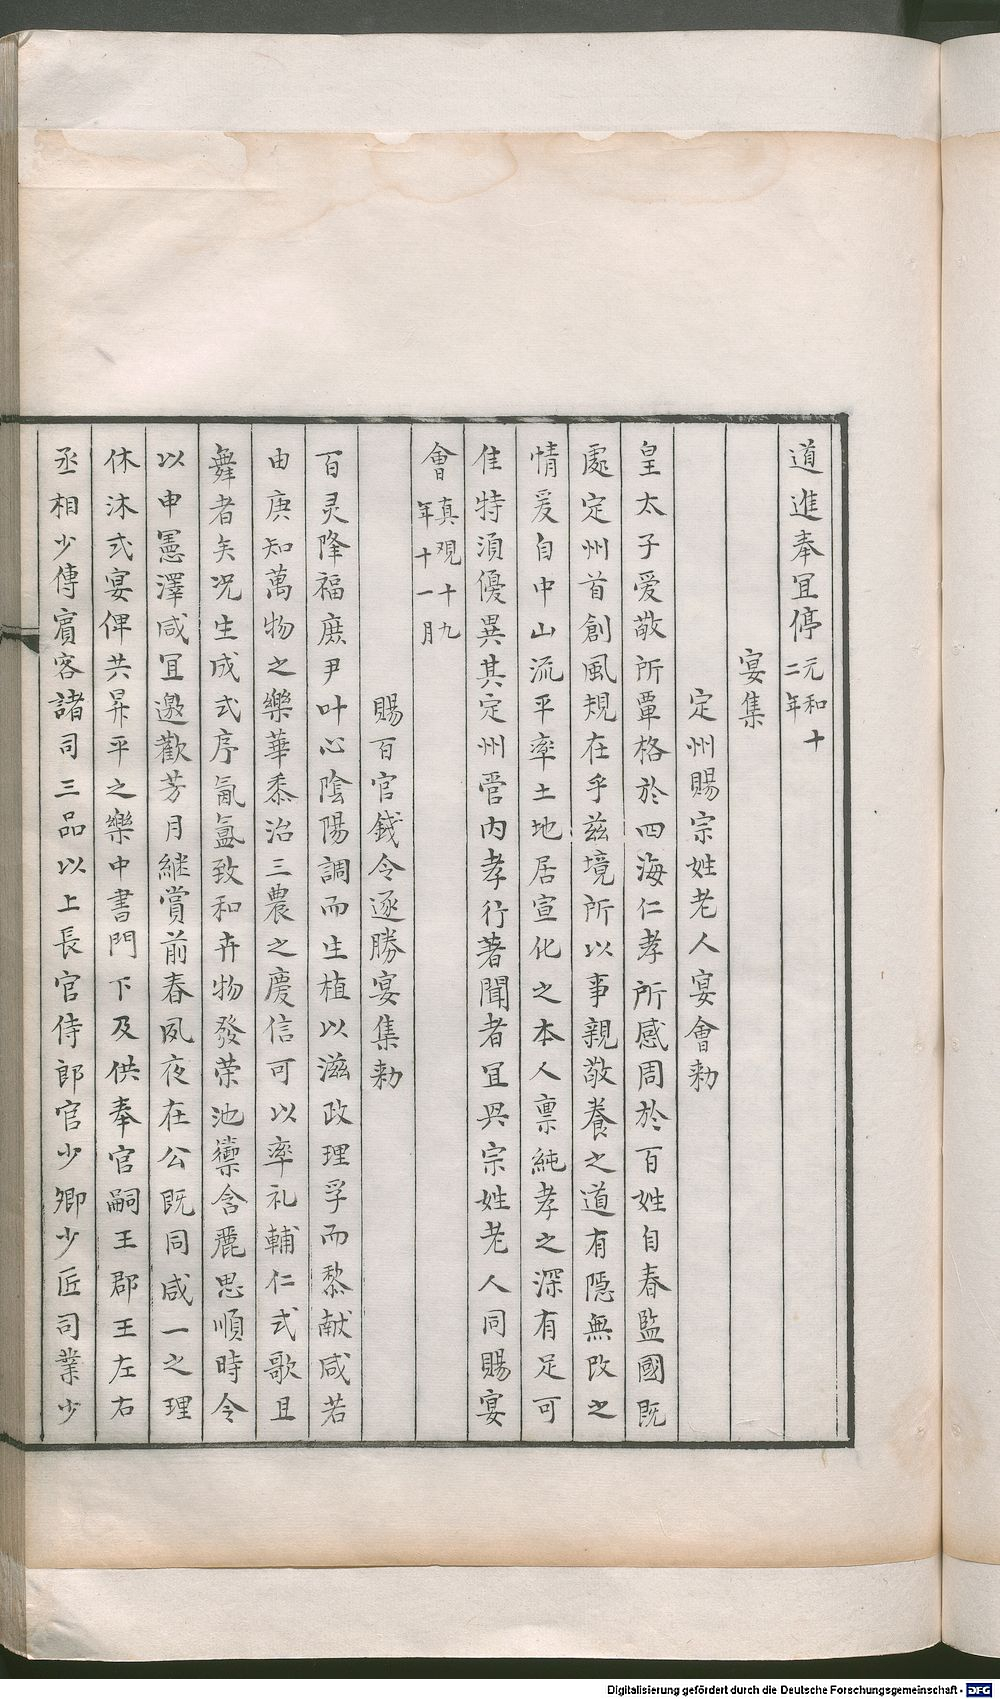 道進奉冝停元和十二年
宴集
定州賜宗姓老人宴會勑
皇太子爱敬所覃格於四海仁孝所感周於百姓自春監國既
處定州首創風規在乎兹境所以事親敬養之道有隱無改之
情爰自中山流平率土地居宣化之本人禀純孝之深有足可
隹特須優異其定州管内孝行著聞者冝與宗姓老人同賜宴
會真观十九年十一月
賜百官錢令逐勝宴集勑
百灵降福庶尹叶心隂陽調而生植以滋政理孚而黎献咸若
由庚知萬物之樂華黍治三農之慶信可以率礼輔仁式歌且
舞者矣况生成式序氤氲致和卉物發荣池籞含麗思順時令
以申憲澤咸冝邀歡芳月継賞前春夙夜在公既同咸一之理
休沐式宴俾共昇平之樂中書門下及供奉官嗣王郡王左右
丞相少傅賓客諸司三品以上長官侍郎官少卿少匠司業少
Digitalisierung gefördert durch die Deutsche Forschungsgemeinschaft - DFG